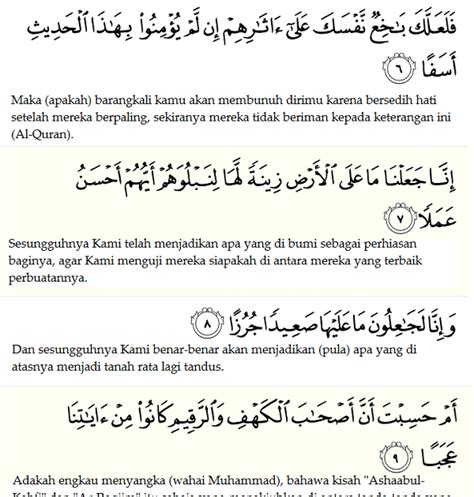 فَلَعَلَّكَ بَـٰخِعٌ نَّفْسَكَ عَلَىٰٓ ءَاثَـٰرِهِمْ إِن لَّمْ يُؤْمِنُوا۟ بِهَـٰذَا ٱلْحَدِيثِ
أَسَفًا ٦
Maka (apakah) barangkali kamu akan membunuh dirimu karena bersedih hati
setelah mereka berpaling, sekiranya mereka tidak beriman kepada keterangan ini
(Al-Quran).
إِنَّا جَعَلْنَا مَا عَلَى ٱلْأَرْضِ زِينَةً لَّهَا لِنَبْلُوَهُمْ أَيُّهُمْ أَحْسَنُ
عَمَلًا ٧
Sesungguhnya Kami telah menjadikan apa yang di bumi sebagai perhiasan
baginya, agar Kami menguji mereka siapakah di antara mereka yang terbaik
perbuatannya.
وَإِنَّا لَجَـٰعِلُونَ مَا عَلَيْهَا صَعِيدًا جُرُزًا ٨
Dan sesungguhnya Kami benar-benar akan menjadikan (pula) apa yang di
atasnya menjadi tanah rata lagi tandus.
أَمْ حَسِبْتَ أَنَّ أَصْحَـٰبَ ٱلْكَهْفِ وَٱلرَّقِيمِ كَانُوا۟ مِنْ ءَايَـٰتِنَا
عَجَبًا ٩
Adakah engkau menyangka (wahai Muhammad), bahawa kisah "Ashaabul-